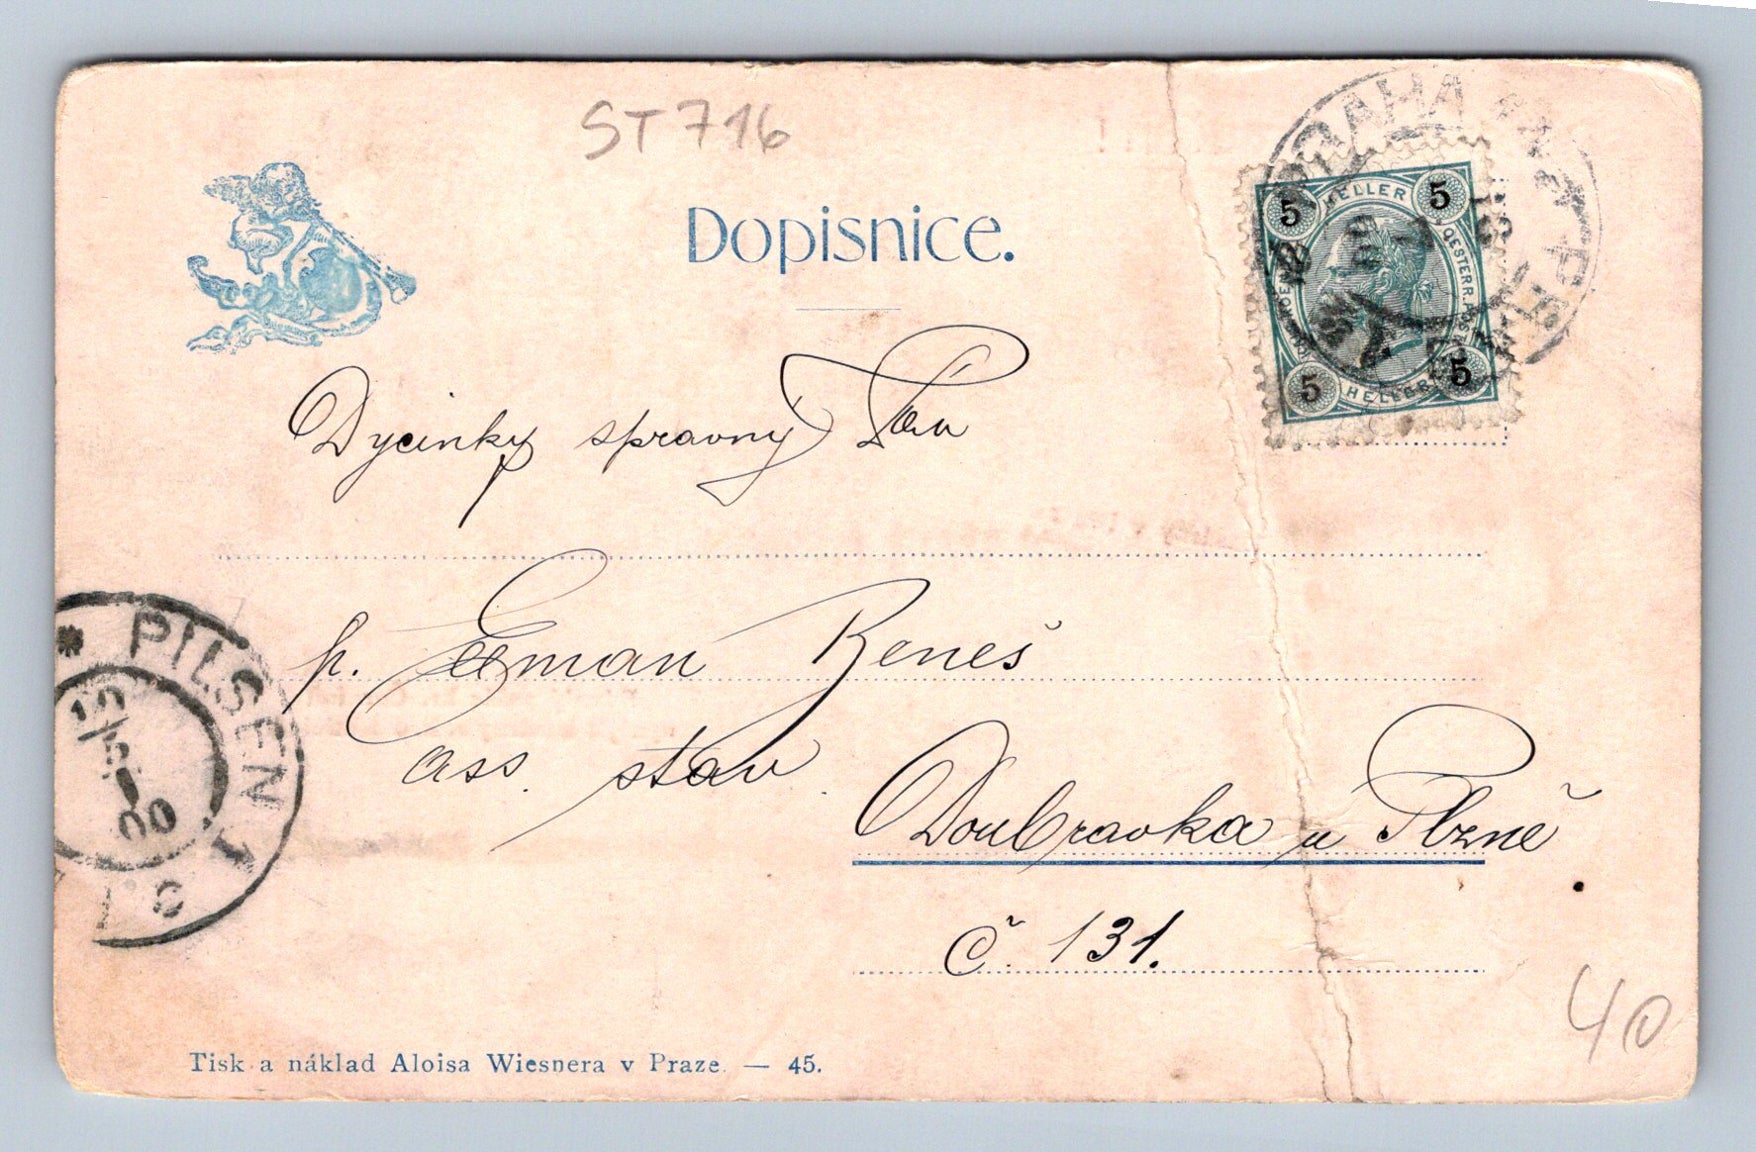 ST 716
Dopisnice.
PRAHA
5 HELLER 5
5 HELLER 5
Dycinky spravny Pan
p. Eman Beneš
ass. stav.
PILSEN 1
12/5
00
Doubravka u Plzně
č. 131.
40
Tisk a náklad Aloisa Wiesnera v Praze. — 45.